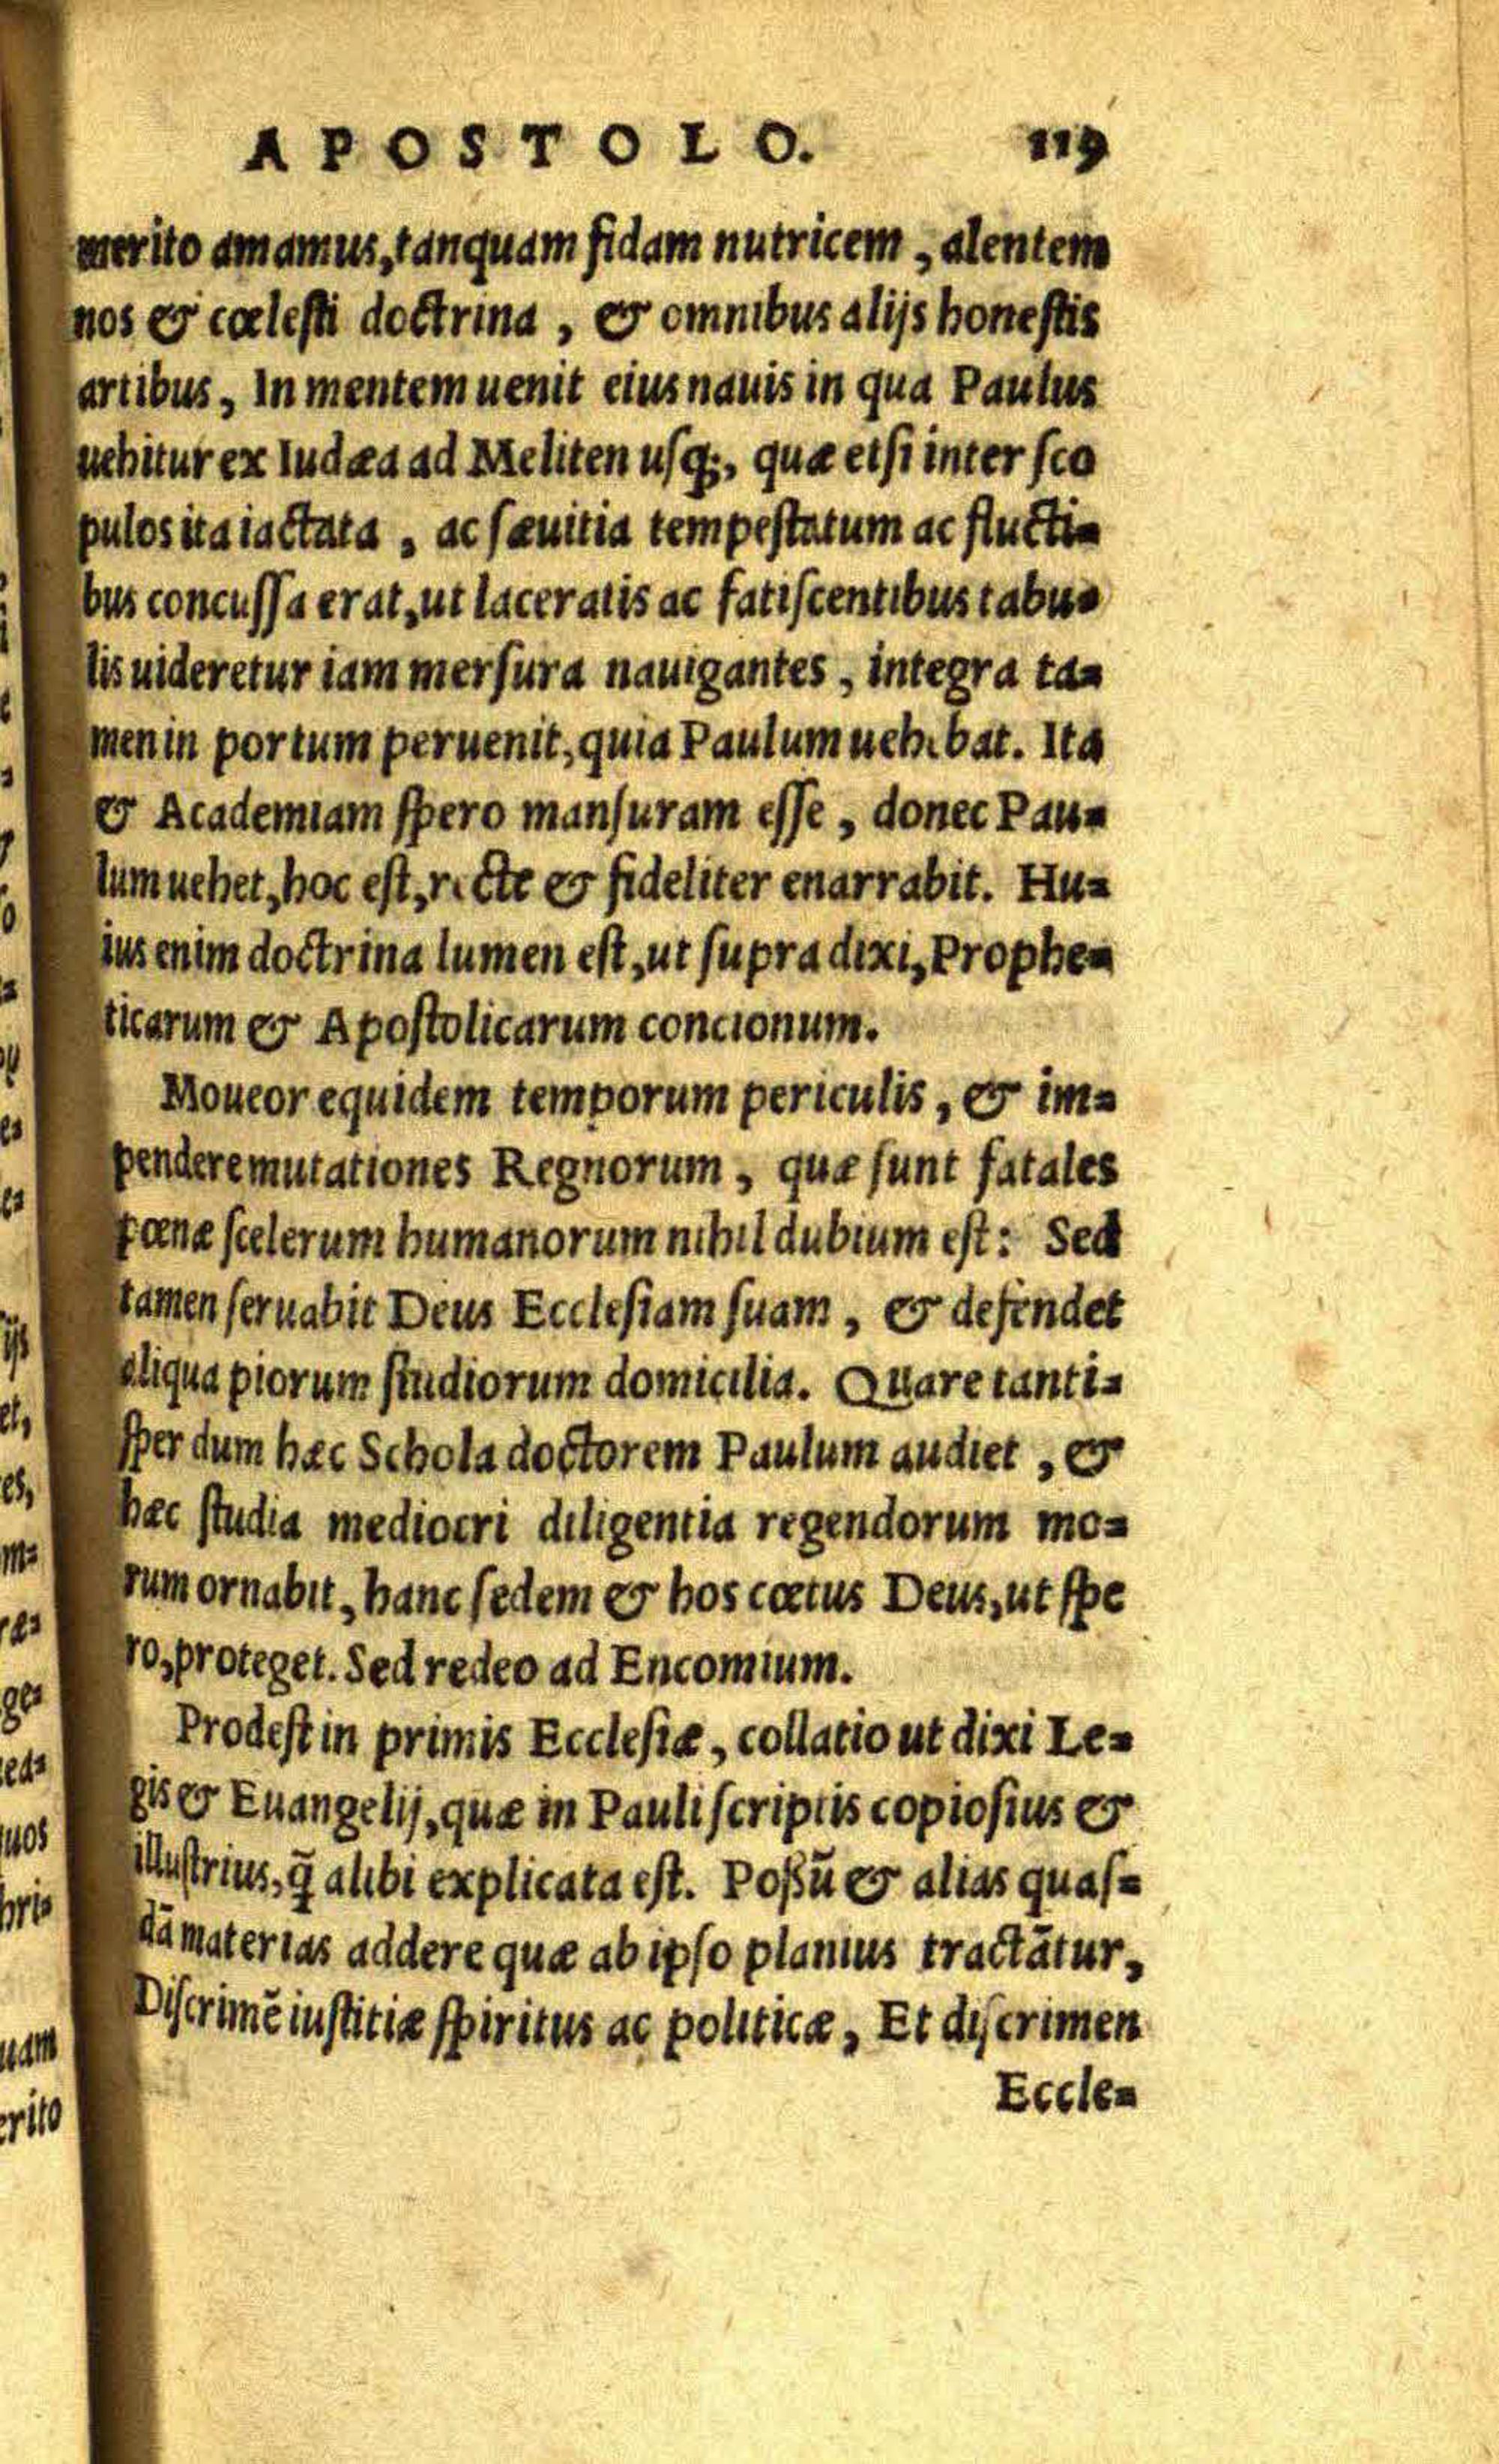 APOSTOLO. 119
merito amamus, tanquam fidam nutricem, alentem
nos & cœlesti doctrina, & omnibus alijs honestis
artibus, In mentem uenit eius nauis in qua Paulus
uehitur ex Iudæa ad Meliten usq;, quæ etsi inter sco
pulos ita iactata, ac sæuitia tempestatum ac flucti-
bus concussa erat, ut laceratis ac fatiscentibus tabu-
lis uideretur iam mersura nauigantes, integra ta-
men in portum peruenit, quia Paulum uehebat. Ita
& Academiam spero mansuram esse, donec Pau-
lum uehet, hoc est, recte & fideliter enarrabit. Hu-
ius enim doctrina lumen est, ut supra dixi, Prophe-
ticarum & Apostolicarum concionum.
Moueor equidem temporum periculis, & im-
pendere mutationes Regnorum, quæ sunt fatales
pœnæ scelerum humanorum nihil dubium est: Sed
tamen seruabit Deus Ecclesiam suam, & defendet
aliqua piorum studiorum domicilia. Quare tanti-
sper dum hæc Schola doctorem Paulum audiet, &
hæc studia mediocri diligentia regendorum mo-
rum ornabit, hanc sedem & hos cœtus Deus, ut spe
ro, proteget. Sed redeo ad Encomium.
Prodest in primis Ecclesiæ, collatio ut dixi Le-
gis & Euangelij, quæ in Pauli scriptis copiosius &
illustrius, q̃ alibi explicata est. Possũ & alias quas-
dã materias addere quæ ab ipso planius tractãtur,
Discrimẽ iustitiæ spiritus ac politicæ, Et discrimen
Eccle-